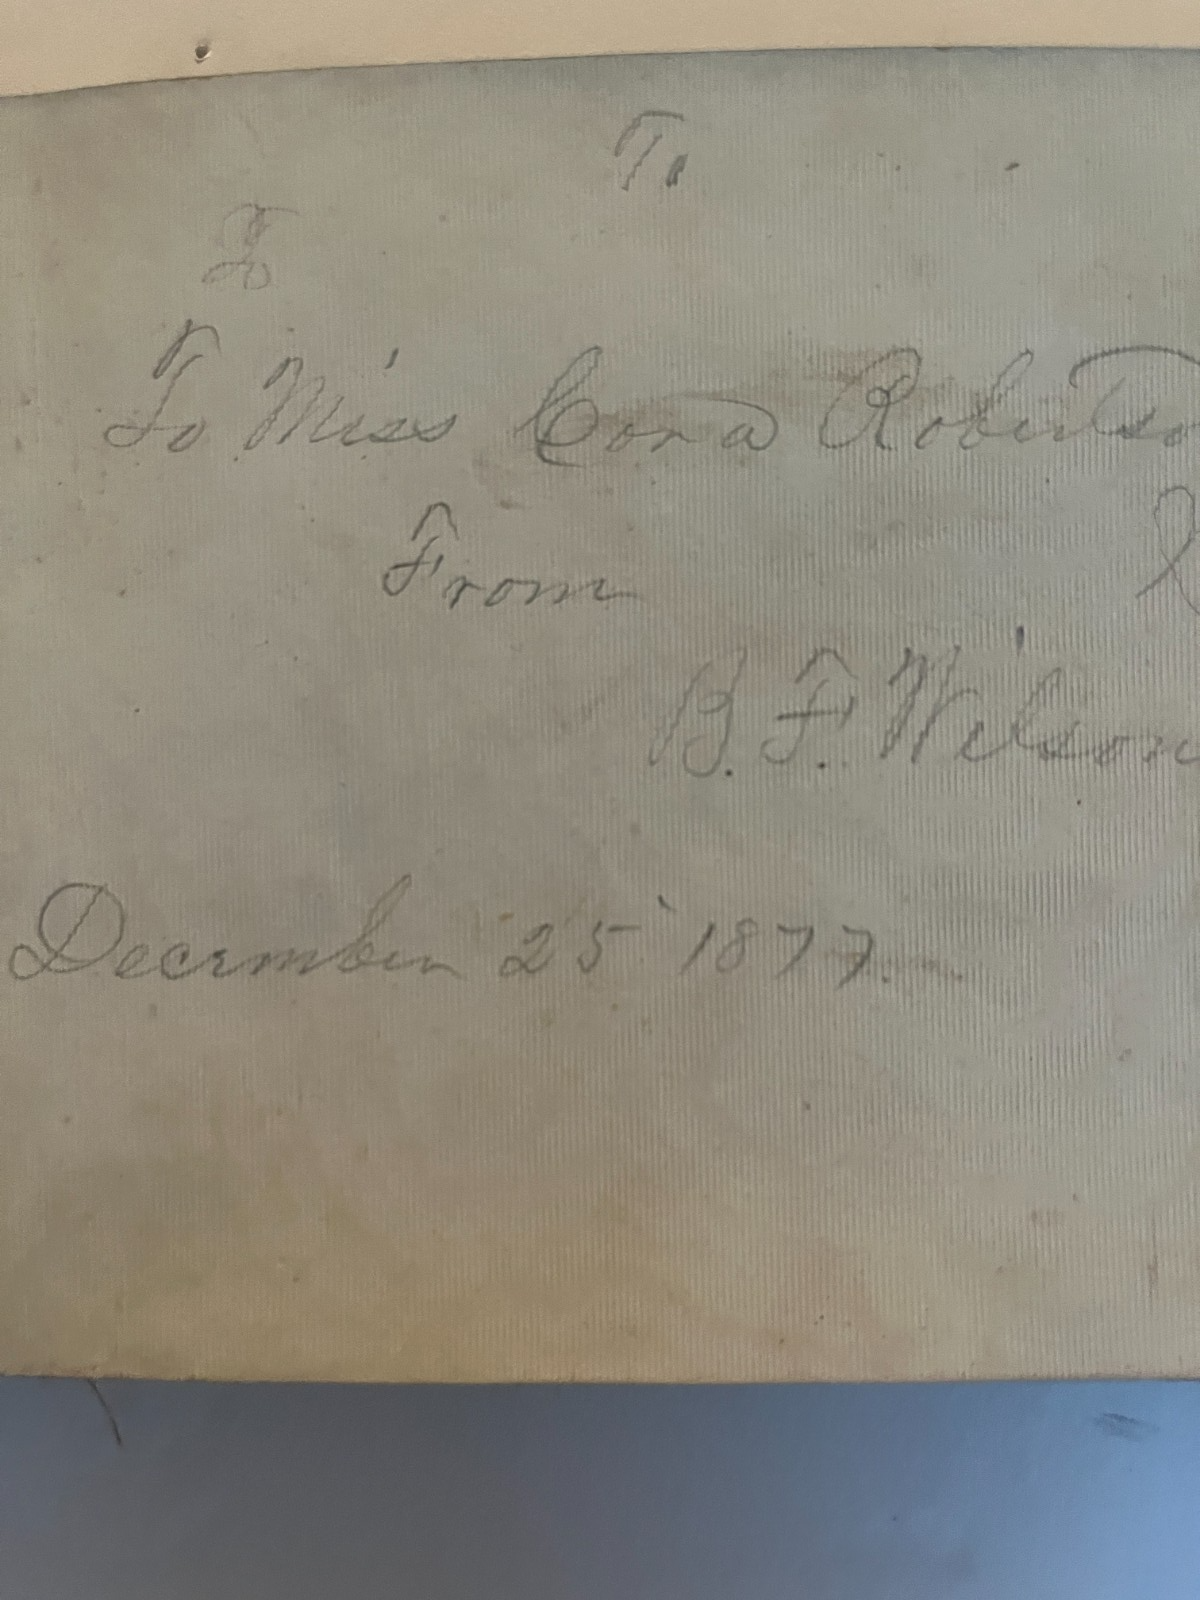 To
To
To Miss Cora Robertso
From
B. F. Wilson
December 25 1877.